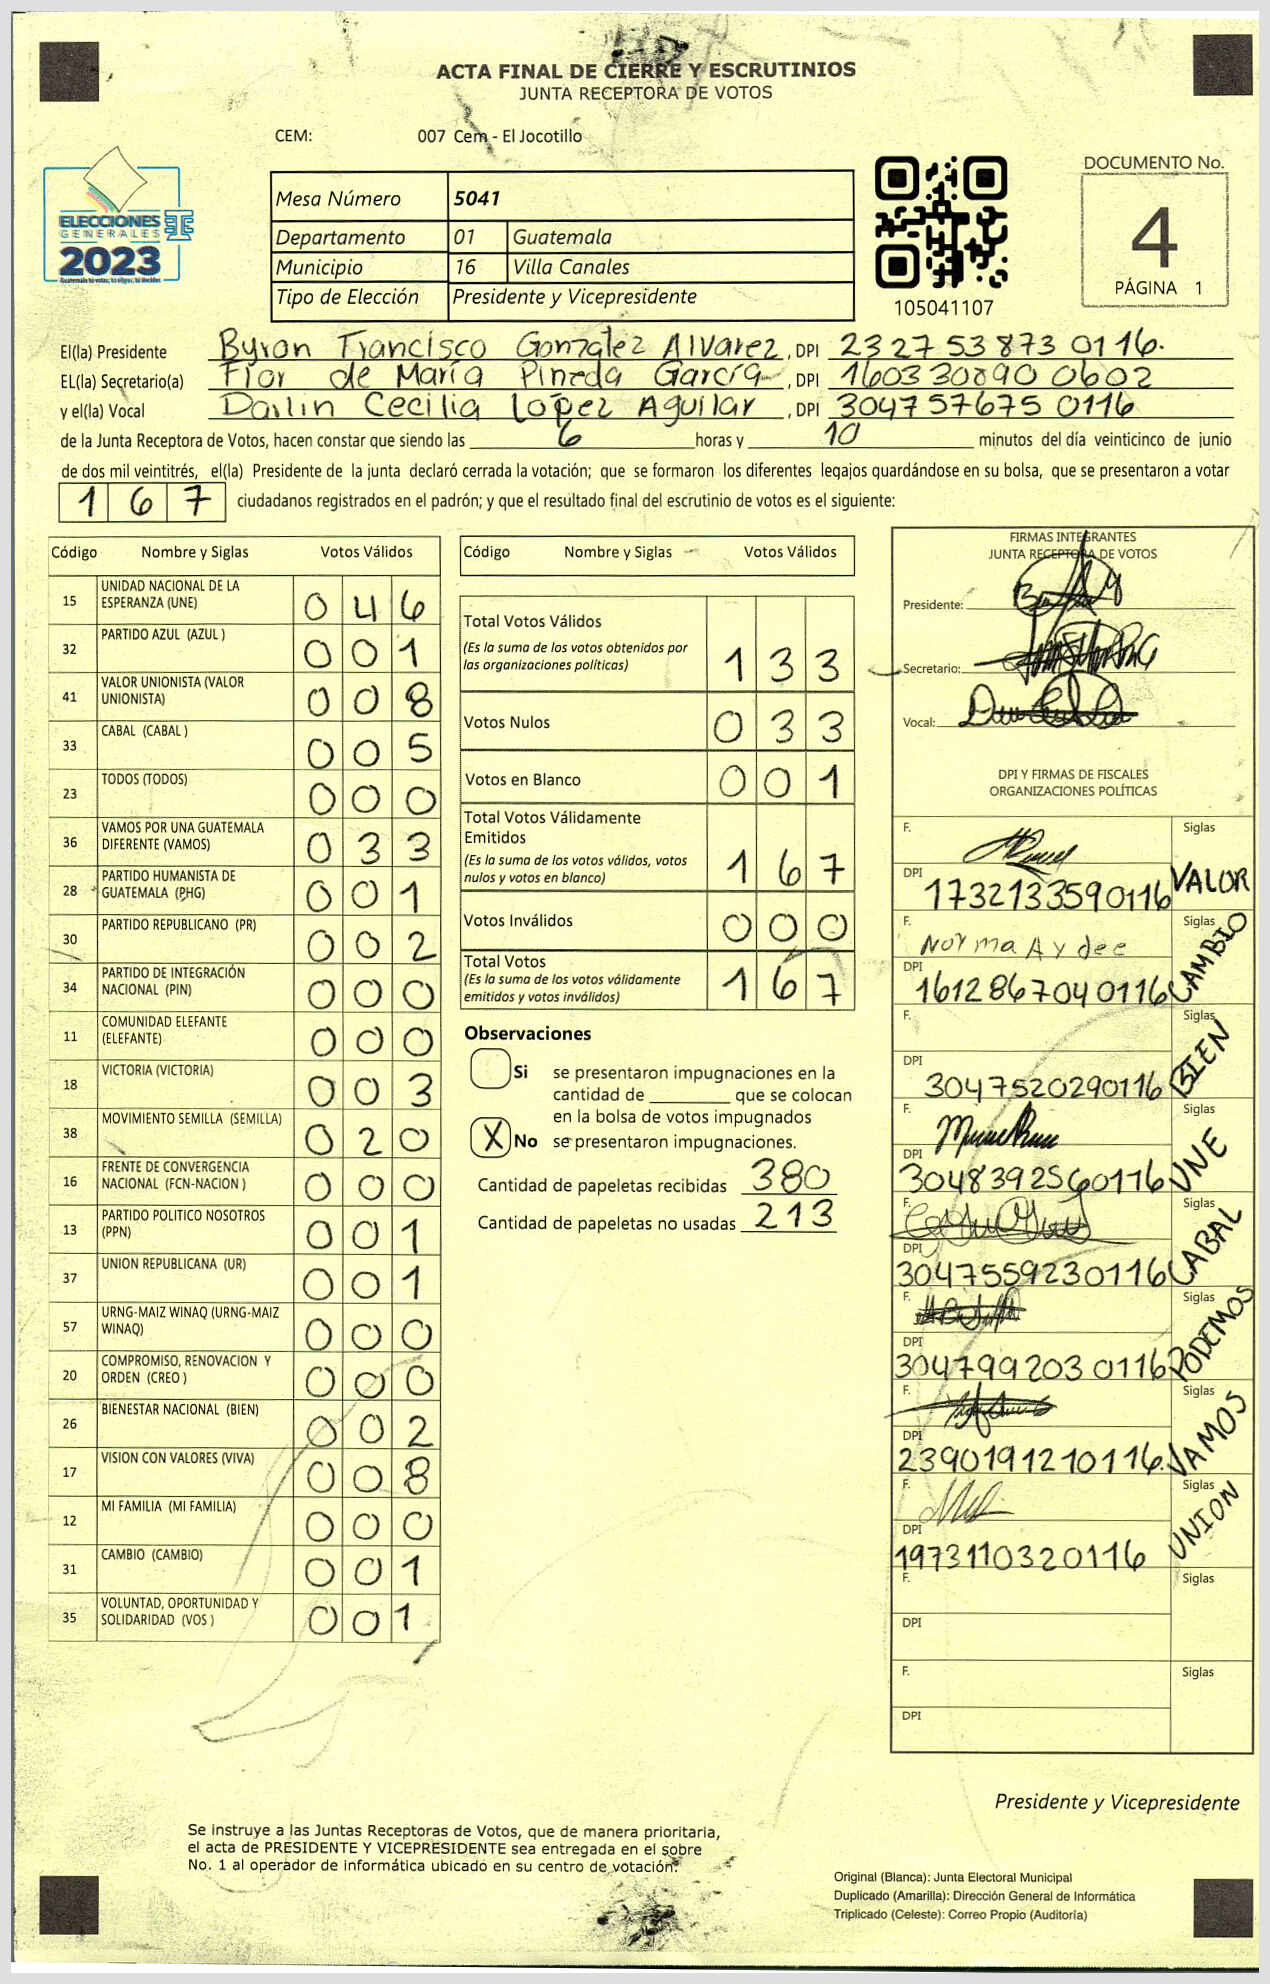 ACTA FINAL DE CIERRE Y ESCRUTINIOS
JUNTA RECEPTORA DE VOTOS
CEM: 007 Cem - El Jocotillo
ELECCIONES
GENERALES
2023
Guatemala tú votas, tú eliges, tú decides
Mesa Número 5041
Departamento 01 Guatemala
Municipio 16 Villa Canales
Tipo de Elección Presidente y Vicepresidente
105041107
DOCUMENTO No.
4
PÁGINA 1
El(la) Presidente Byron Francisco González Alvarez, DPI 2327538730116.
EL(la) Secretario(a) Flor de María Pineda García, DPI 1603308900602
y el(la) Vocal Darlin Cecilia López Aguilar, DPI 3047576750116
de la Junta Receptora de Votos, hacen constar que siendo las 6 horas y 10 minutos del día veinticinco de junio
de dos mil veintitrés, el(la) Presidente de la junta declaró cerrada la votación; que se formaron los diferentes legajos guardándose en su bolsa, que se presentaron a votar
167 ciudadanos registrados en el padrón; y que el resultado final del escrutinio de votos es el siguiente:
Código Nombre y Siglas Votos Válidos
15 UNIDAD NACIONAL DE LA ESPERANZA (UNE) 046
32 PARTIDO AZUL (AZUL ) 001
41 VALOR UNIONISTA (VALOR UNIONISTA) 008
33 CABAL (CABAL ) 005
23 TODOS (TODOS) 000
36 VAMOS POR UNA GUATEMALA DIFERENTE (VAMOS) 033
28 PARTIDO HUMANISTA DE GUATEMALA (PHG) 001
30 PARTIDO REPUBLICANO (PR) 002
34 PARTIDO DE INTEGRACIÓN NACIONAL (PIN) 000
11 COMUNIDAD ELEFANTE (ELEFANTE) 000
18 VICTORIA (VICTORIA) 003
38 MOVIMIENTO SEMILLA (SEMILLA) 020
16 FRENTE DE CONVERGENCIA NACIONAL (FCN-NACION ) 000
13 PARTIDO POLITICO NOSOTROS (PPN) 001
37 UNION REPUBLICANA (UR) 001
57 URNG-MAIZ WINAQ (URNG-MAIZ WINAQ) 000
20 COMPROMISO, RENOVACION Y ORDEN (CREO ) 000
26 BIENESTAR NACIONAL (BIEN) 002
17 VISION CON VALORES (VIVA) 008
12 MI FAMILIA (MI FAMILIA) 000
31 CAMBIO (CAMBIO) 001
35 VOLUNTAD, OPORTUNIDAD Y SOLIDARIDAD (VOS ) 001
Código Nombre y Siglas Votos Válidos
Total Votos Válidos 133
(Es la suma de los votos obtenidos por
las organizaciones políticas)
Votos Nulos 033
Votos en Blanco 001
Total Votos Válidamente
Emitidos 167
(Es la suma de los votos válidos, votos
nulos y votos en blanco)
Votos Inválidos 000
Total Votos 167
(Es la suma de los votos válidamente
emitidos y votos inválidos)
Observaciones
Si se presentaron impugnaciones en la
cantidad de ________ que se colocan
en la bolsa de votos impugnados
X No se presentaron impugnaciones.
Cantidad de papeletas recibidas 380
Cantidad de papeletas no usadas 213
FIRMAS INTEGRANTES
JUNTA RECEPTORA DE VOTOS
Presidente:
Secretario:
Vocal:
DPI Y FIRMAS DE FISCALES
ORGANIZACIONES POLÍTICAS
F. Siglas
DPI 1732133590116 VALOR
F. Norma Aydee Siglas
DPI 1612867040116 CAMBIO
F. Siglas
DPI 3047520290116 BIEN
F. Siglas
DPI 3048392560116 UNE
F. Siglas
DPI 3047559230116 CABAL
F. Siglas
DPI 3047992030116 PODEMOS
F. Siglas
DPI 2390191210116. VAMOS
F. Siglas
DPI 1973110320116 UNION
F. Siglas
DPI
F. Siglas
DPI
Presidente y Vicepresidente
Se instruye a las Juntas Receptoras de Votos, que de manera prioritaria,
el acta de PRESIDENTE Y VICEPRESIDENTE sea entregada en el sobre
No. 1 al operador de informática ubicado en su centro de votación.
Original (Blanca): Junta Electoral Municipal
Duplicado (Amarilla): Dirección General de Informática
Triplicado (Celeste): Correo Propio (Auditoría)